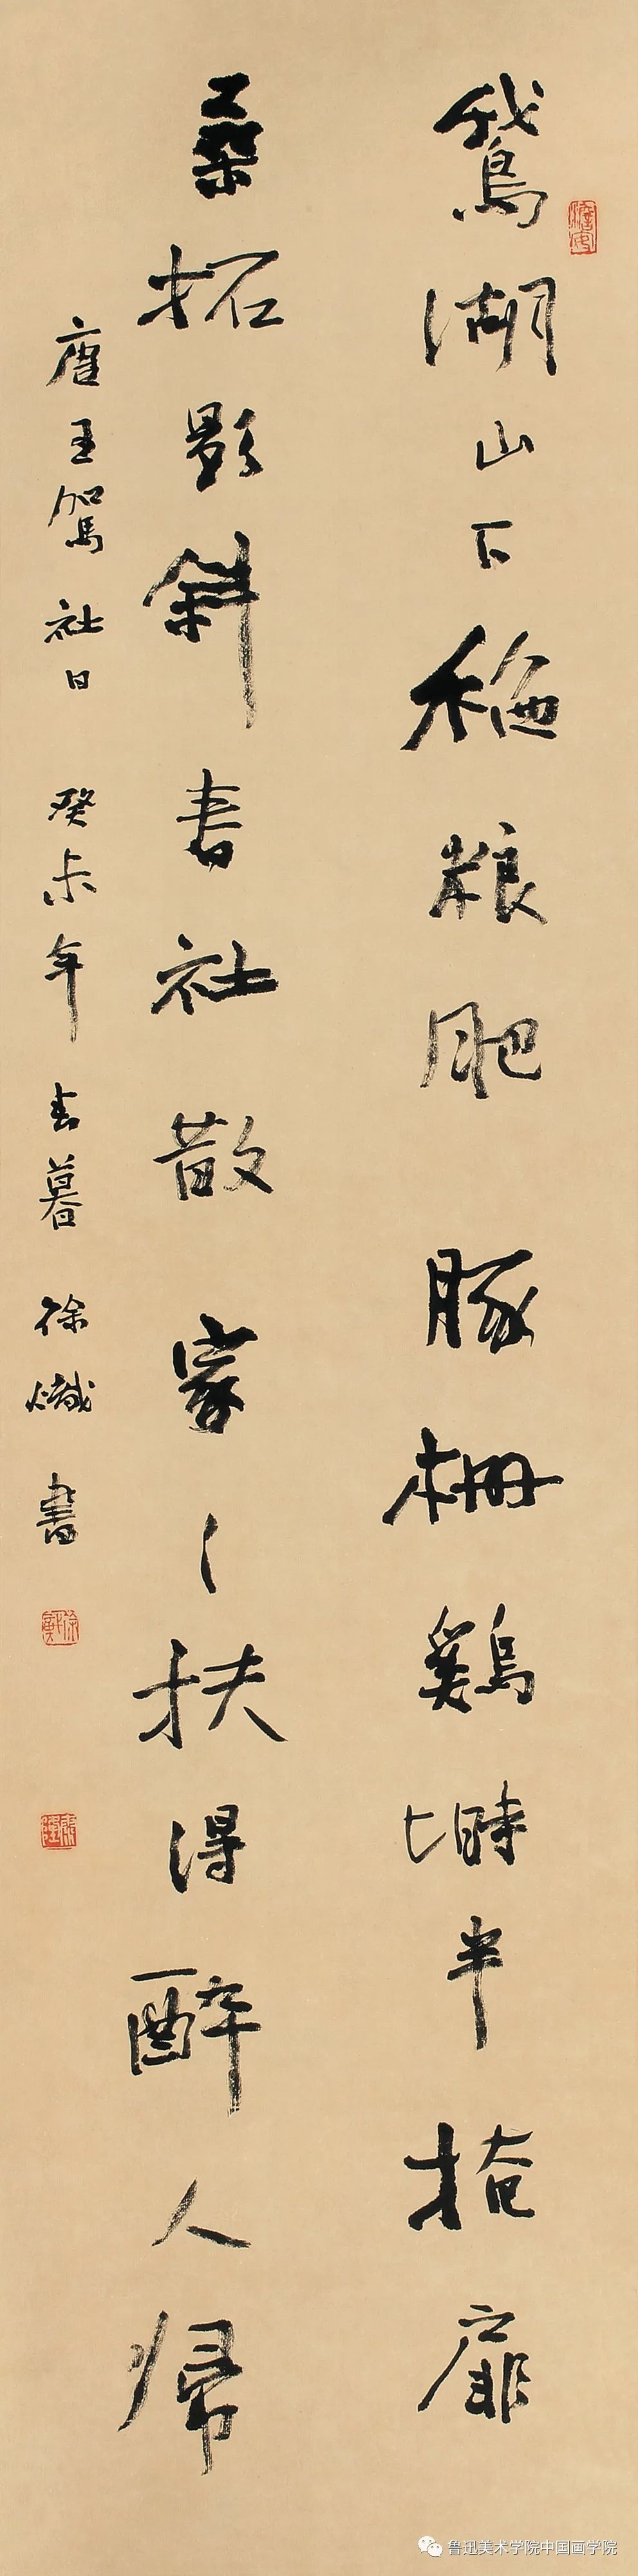 鵞湖山下稻粮肥豚柵鷄塒半掩扉
桑拓影斜春社散家々扶得醉人歸
唐王駕社日 癸未年春暮 徐熾書
鲁迅美术学院中国画学院